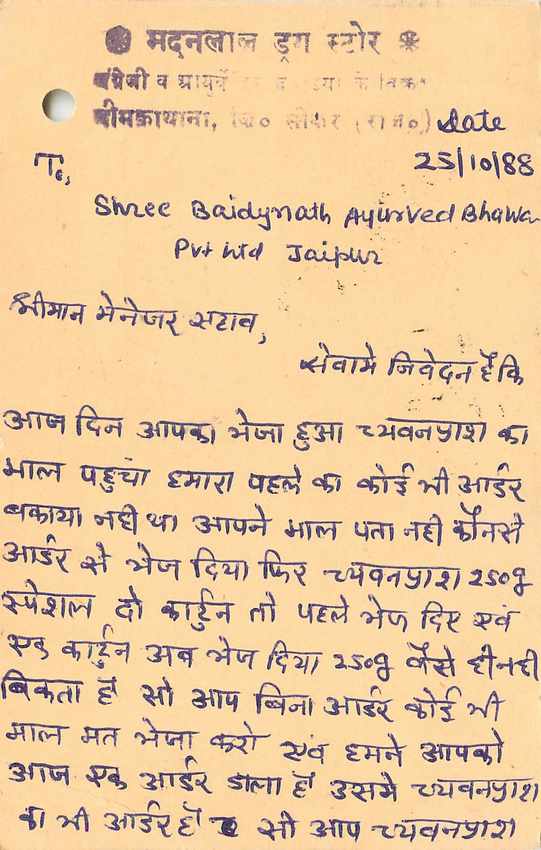 मदनलाल ड्रग स्टोर
अंग्रेजी व आयुर्वे
नीमकाथाना, जि० सीकर (राज०) Date
To, 25/10/88
Shree Baidynath Ayurved Bhawan
Pvt Ltd Jaipur
श्रीमान मेनेजर साहब,
सेवामे निवेदन हैं कि
आज दिन आपका भेजा हुआ च्यवनप्राश का
माल पहुचा हमारा पहले का कोई भी आर्डर
बकाया नही था आपने माल पता नही कौनसे
आर्डर से भेज दिया फिर च्यवनप्राश 250g
स्पेशल दो कार्टुन तो पहले भेज दिए एवं
एक कार्टुन अब भेज दिया 250g वैसे ही नही
बिकता है सो आप बिना आर्डर कोई भी
माल मत भेजा करो एवं हमने आपको
आज एक आर्डर डाला है उसमे च्यवनप्राश
का भी आर्डर है सो आप च्यवनप्राश